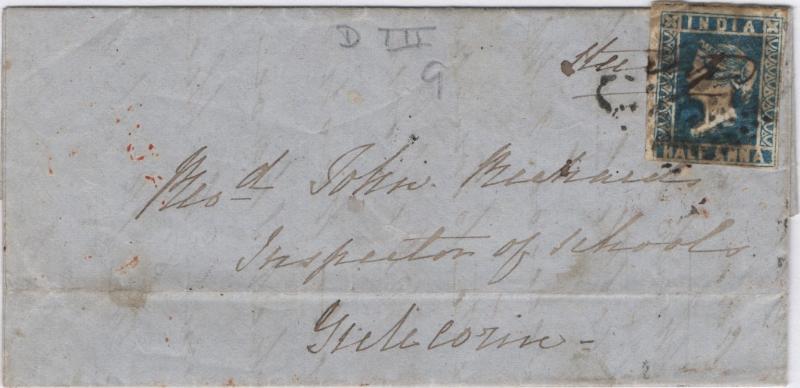 D III
9
INDIA
HALF ANNA
Revd John Richards
Inspector of Schools